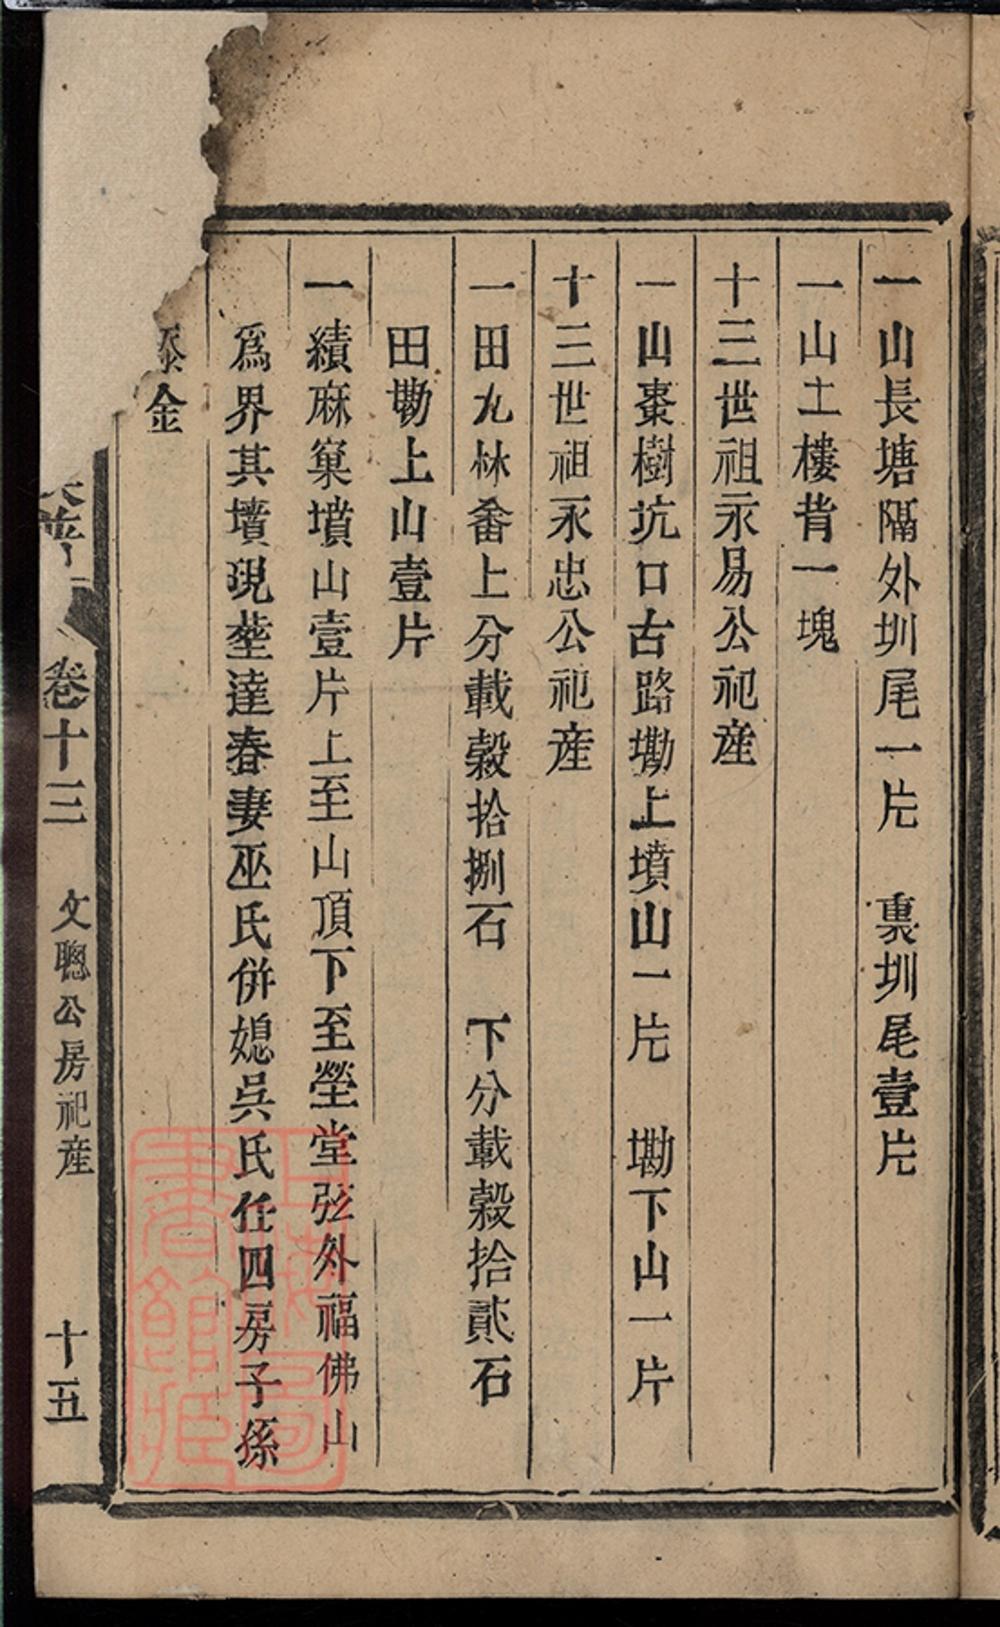 一山長塘隔外圳尾一片　裏圳尾壹片
一山土樓背一塊
十三世祖永易公祀產
一山棗樹坑口古路墈上墳山一片　墈下山一片
十三世祖永忠公祀產
一田九林畨上分載穀拾捌石　下分載穀拾貳石
田墈上山壹片
一績麻窠墳山壹片上至山頂下至塋堂弦外福佛山
爲界其墳現塟達春妻巫氏併媳吳氏任四房子孫
金
卷十三　文聰公房祀產　十五
上海圖書館藏